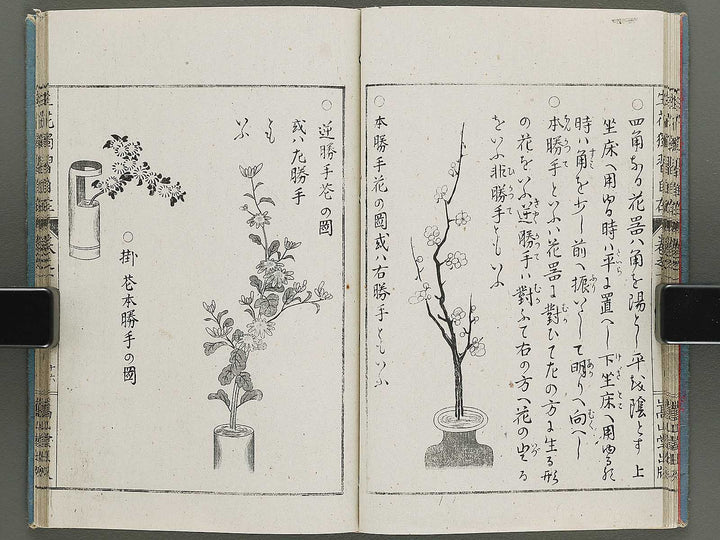 ○四角なる花器ハ角を陽とし平を陰とす上
坐床へ用ゆる時ハ平に置へし下坐床へ用ゆる
時ハ角を少し前へ振いだして明りへ向へし
○本勝手といふハ花器に對ひて左の方に生る形
の花をいふ逆勝手ハ對ふて右の方へ花の出る
をいふ非勝手ともいふ
○本勝手花の圖或ハ右勝手ともいふ
○逆勝手花の圖
或ハ左勝手
とも
いふ
○掛花本勝手の圖
嵩山堂出版